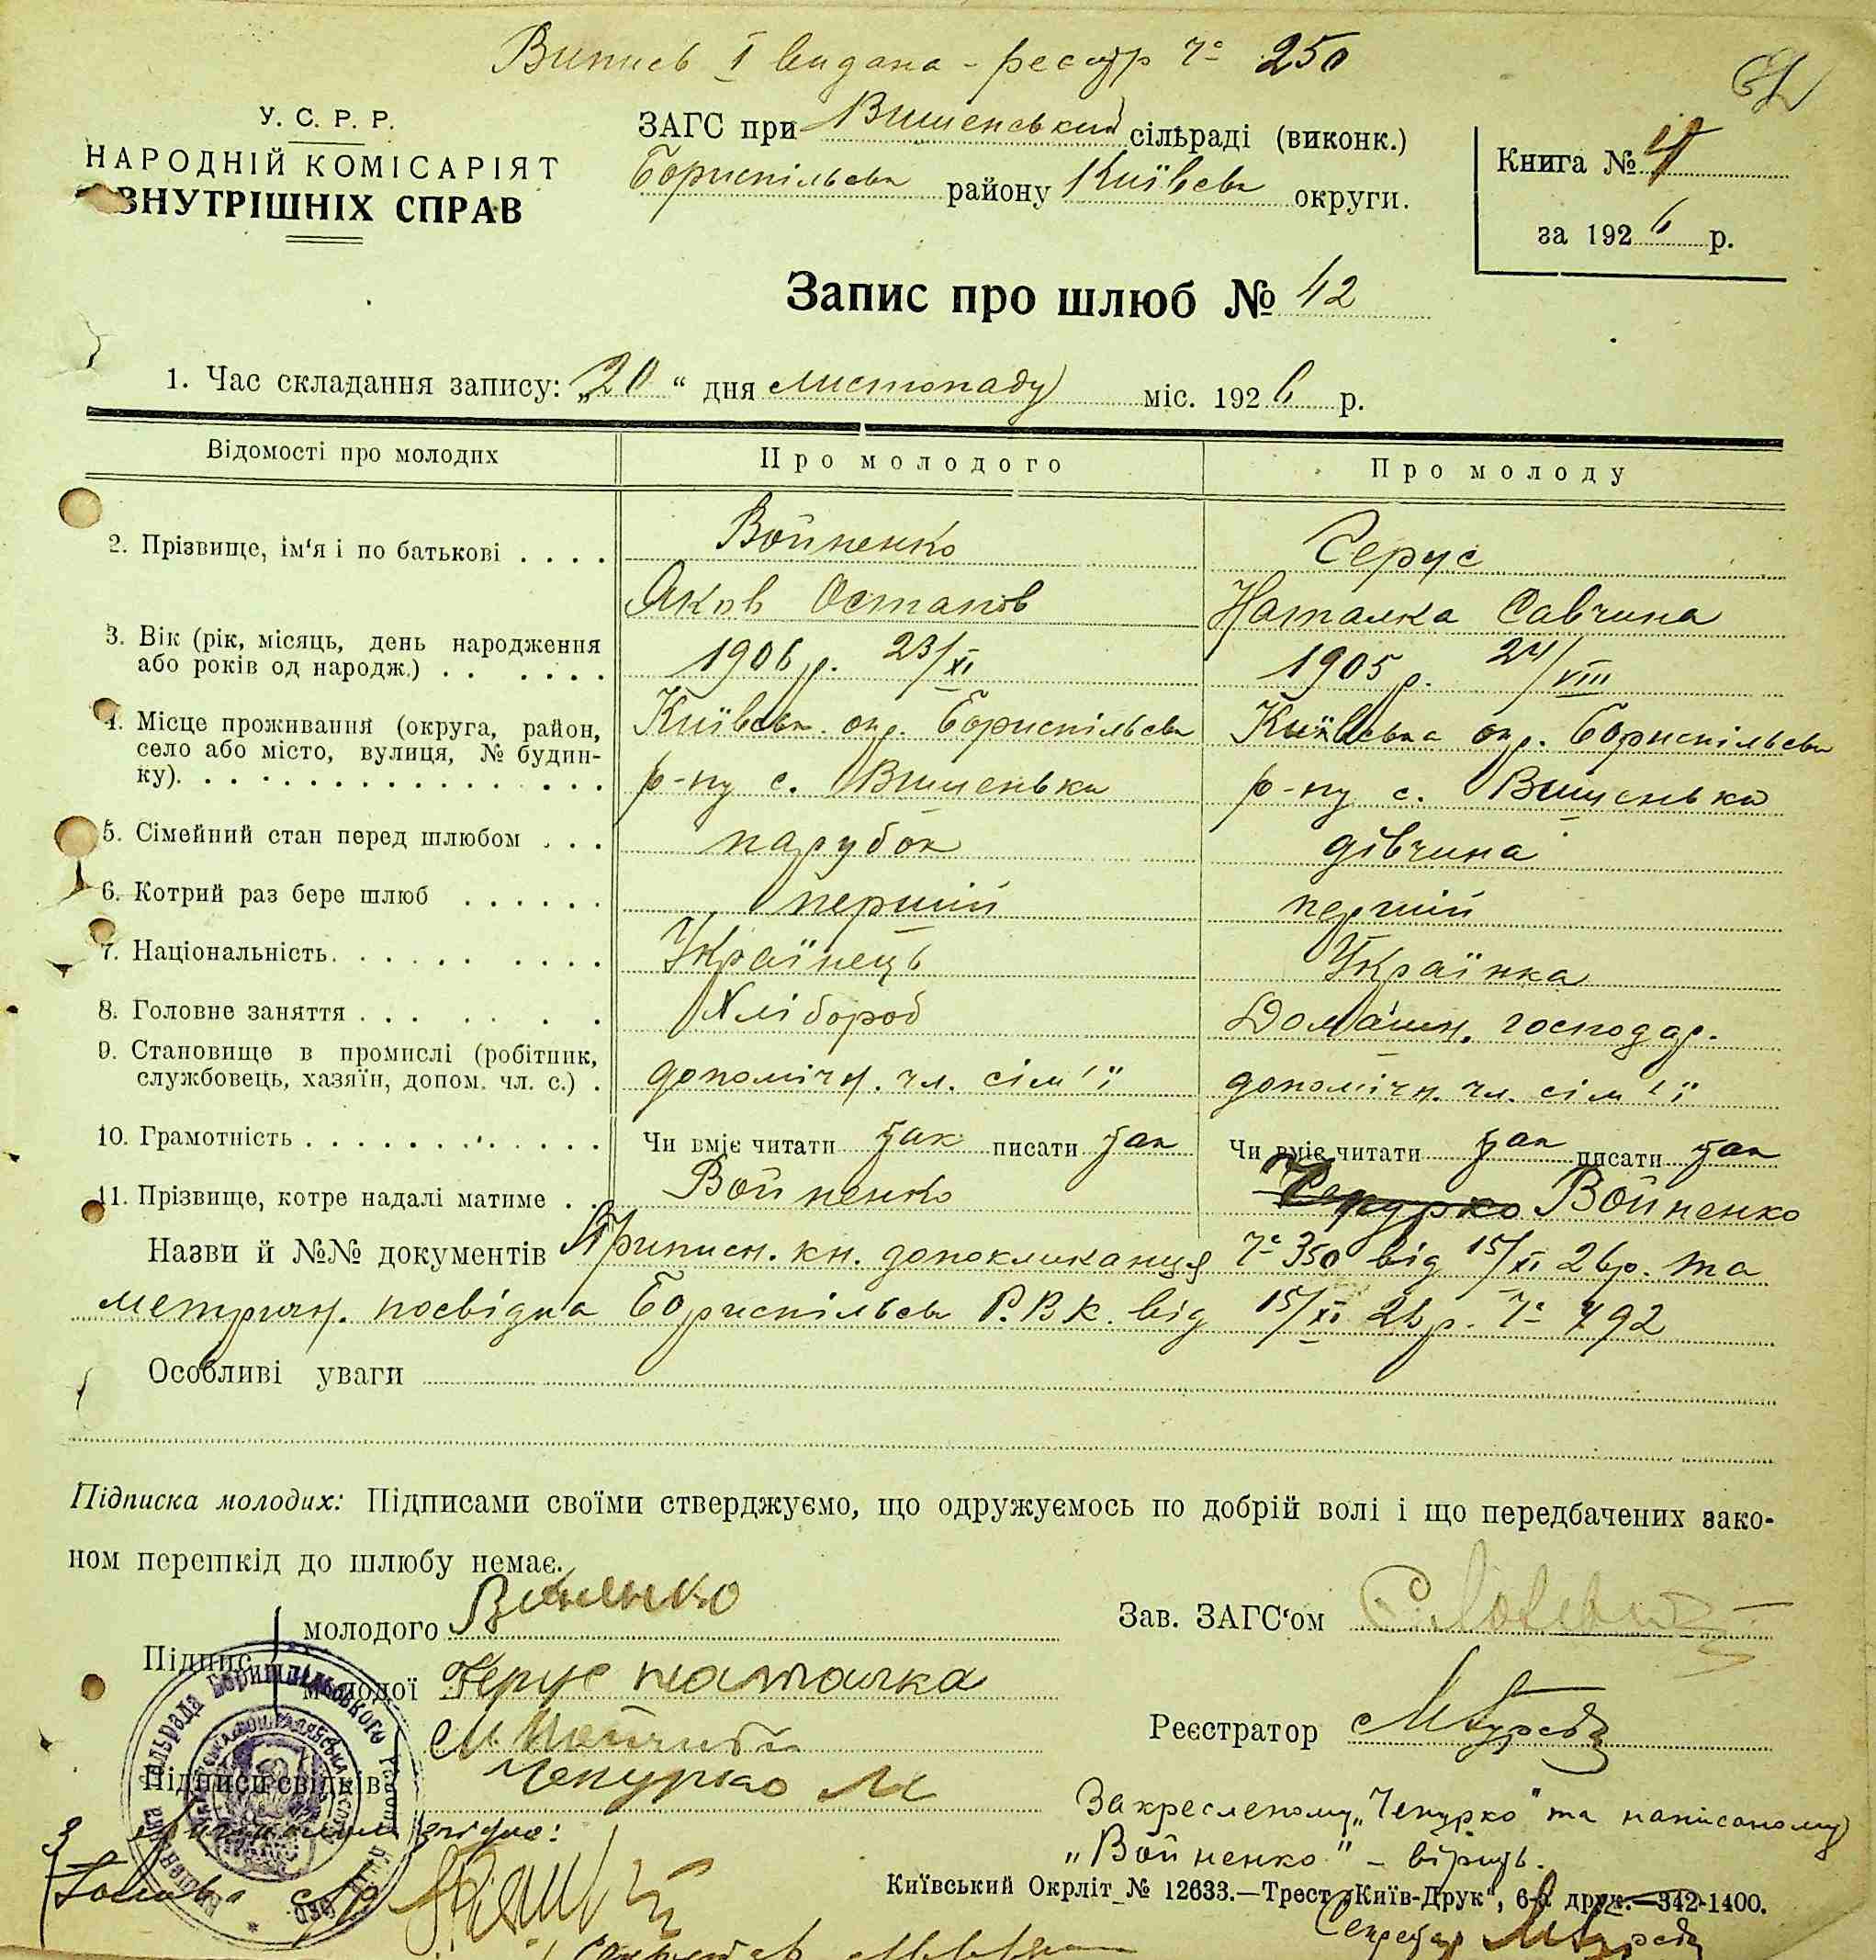 Випись I видана - реєстр № 250
У. С. Р. Р.
НАРОДНІЙ КОМІСАРІЯТ
ВНУТРІШНІХ СПРАВ
ЗАГС при Вишенський сільраді (виконк.)
Бориспільськ району Київськ округи.
Книга №
за 1926 р.
Запис про шлюб № 42
1. Час складання запису: „20“ дня листопаду міс. 1926 р.
Відомості про молодих Про молодого Про молоду
2. Прізвище, ім'я і по батькові . . . . Войненко Герус
Яков Остапов Наталка Савчина
3. Вік (рік, місяць, день народження або років од народж.) . . . . . . 1906 р. 23/XI 1905 р. 24/VIII
4. Місце проживання (округа, район, село або місто, вулиця, № будинку). Київськ. окр. Бориспільськ Київська окр. Бориспільськ
р-ну с. Вишенька р-ну с. Вишенька
5. Сімейний стан перед шлюбом . . . парубок дівчина
6. Котрий раз бере шлюб . . . . . . перший перший
7. Національність. . . . . . . . . . Українець Українка
8. Головне заняття . . . . . . . Хлібороб Домашн. господар.
9. Становище в промислі (робітник, службовець, хазяїн, допом. чл. с.) . допомічн. чл. сім'ї допомічн. чл. сім'ї
10. Грамотність . . . . . . . . . . . Чи вміє читати так писати так Чи вміє читати так писати так
11. Прізвище, котре надалі матиме . . Войненко Чепурко Войненко
Назви й №№ документів Приписн. кн. допокликанця № 350 від 15/XI 26р. та
метричн. посвідка Бориспільськ Р.В.К. від 15/XI 26 р. № 792
Особливі уваги
Підписка молодих: Підписами своїми стверджуємо, що одружуємось по добрій волі і що передбачених зако-
ном перешкід до шлюбу немає.
Підпис молодого
молодої Герус наталка
Підписи свідків
Чепурко М
Зав. ЗАГС'ом
Реєстратор
Закресленому „Чепурко" та написаному
„Войненко" – вірить.
З оригіналом згідно:
Голова с/р
Київський Окрліт № 12633.—Трест „Київ-Друк", 6-а друк.—342-1400.
Секретар
Секретар